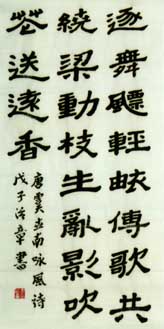 逐舞飄輕袖傳歌共
繞梁動枝生亂影吹
花送遠香
唐虞世南咏風詩
戊子 章書